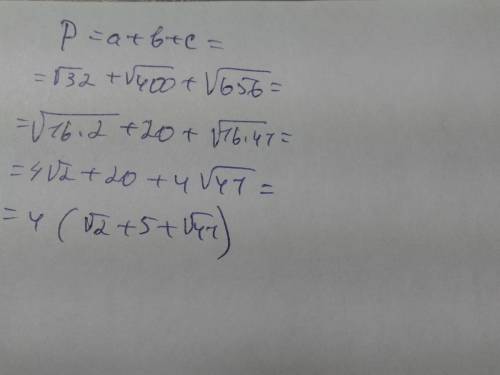 P = a + b + c =
= √32 + √400 + √656 =
= √16·2 + 20 + √16·41 =
= 4√2 + 20 + 4√41 =
= 4 (√2 + 5 + √41)